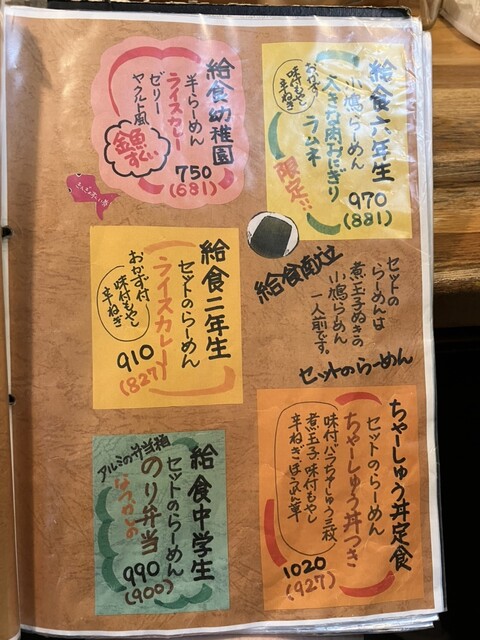 給食六年生
小鳩らーめん
大きな肉おにぎり
ラムネ
おかず
味付もやし
辛ねぎ
限定!!
970
(881)
給食幼稚園
半らーめん
ライスカレー
ゼリー
ヤクルト風
金魚
すくい
750
(681)
給食献立
セットの
らーめんは
煮玉子ぬきの
小鳩らーめん
一人前です。
給食二年生
セットのらーめん
ライスカレー
おかず付
味付もやし
辛ねぎ
910
(827)
セットのらーめん
ちゃーしゅう丼定食
セットのらーめん
ちゃーしゅう丼つき
味付バラちゃーしゅう三枚
煮玉子 味付もやし
辛ねぎ ほうれん草
1020
(927)
給食中学生
セットのらーめん
のり弁当
アルミの弁当箱
なつかしの
990
(900)